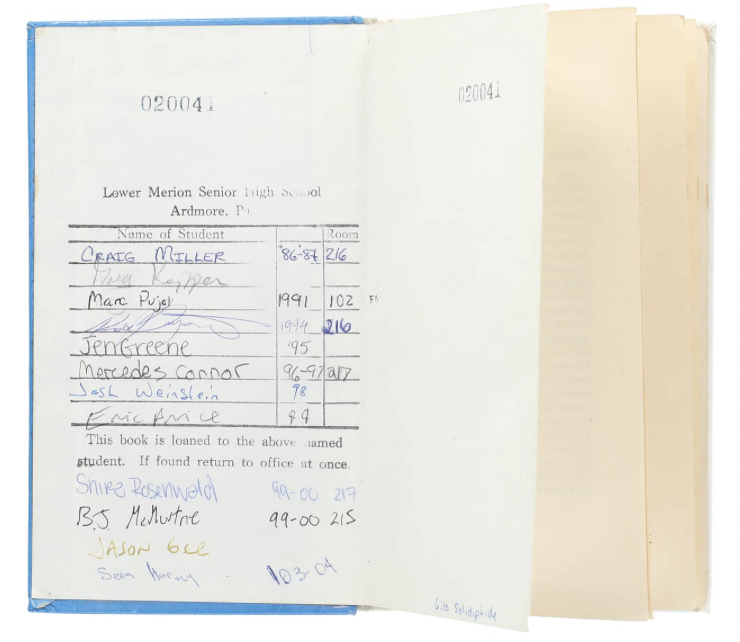 020041
Lower Merion Senior High School
Ardmore, Pa.
Name of Student Room
CRAIG MILLER '86-'87 216
Greg
Marc Pujol 1991 102
1994 216
Jen Greene '95
Mercedes Connor 96-97 217
Josh Weinstein 98
Eric Price 99
This book is loaned to the above named
student. If found return to office at once.
Shira Rosenwald 99-00 217
B.J. McMurtrie 99-00 215
JASON GEE
Sean 03-04
020041